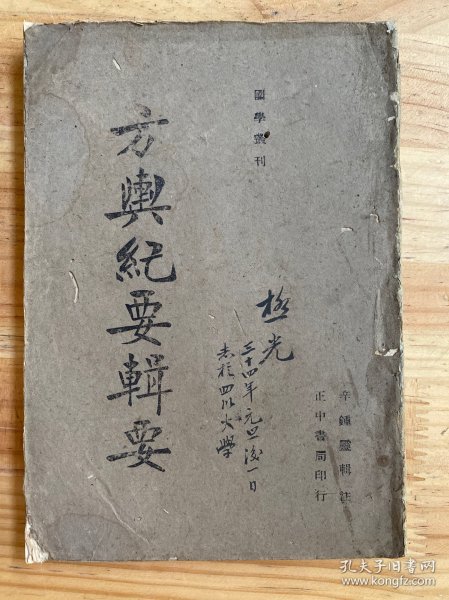 國學叢刊
方輿紀要輯要
光
三十四年元旦後一日
志於四川大學
辛鍾靈輯注
正中書局印行
孔夫子旧书网
www.kongfz.com